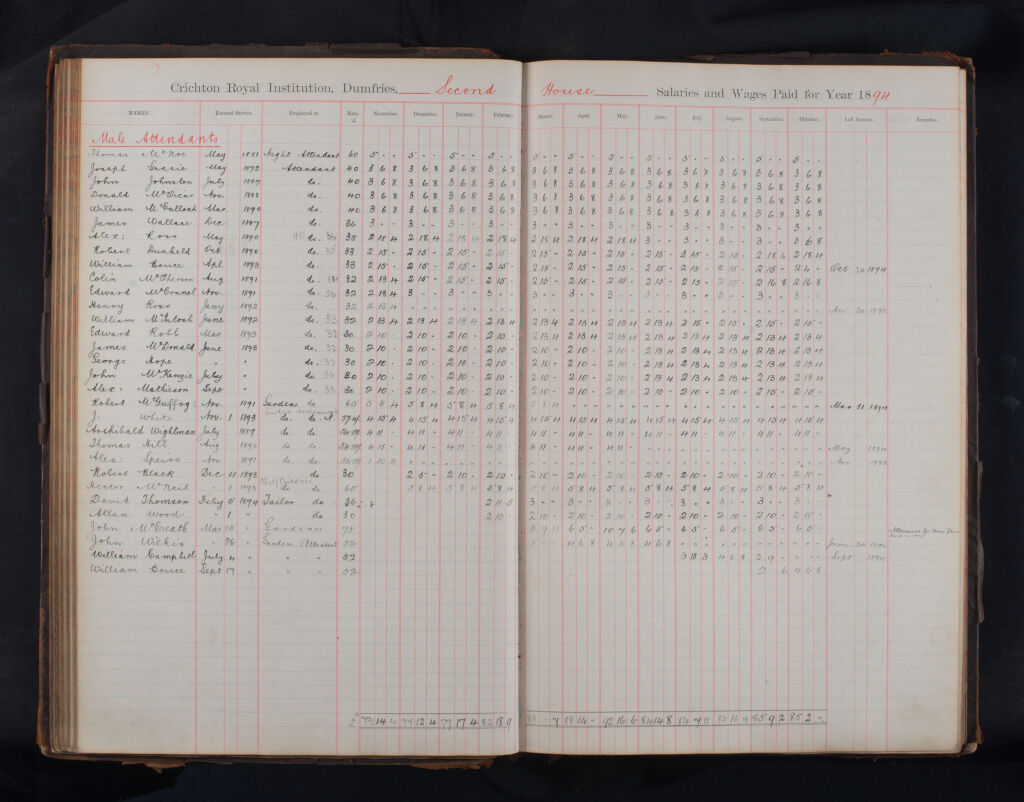 Crichton Royal Institution, Dumfries, Second House Salaries and Wages Paid for Year 1894
NAMES. Entered Service. Employed as Rate. £ November. December. January. February. March. April. May. June. July. August. September. October. Left Service. Remarks.
Male Attendants
Thomas May 1881 Night Attendant 60 5 - - 5 - - 5 - - 5 - - 5 - - 5 - - 5 - - 5 - - 5 - - 5 - - 5 - - 5 - -
Joseph Gracie May 1872 Attendant 40 3 6 8 3 6 8 3 6 8 3 6 8 3 6 8 3 6 8 3 6 8 3 6 8 3 6 8 3 6 8 3 6 8 3 6 8
John Johnston July 1887 do. 40 3 6 8 3 6 8 3 6 8 3 6 8 3 6 8 3 6 8 3 6 8 3 6 8 3 6 8 3 6 8 3 6 8 3 6 8
Donald McVicar Nov. 1888 do. 40 3 6 8 3 6 8 3 6 8 3 6 8 3 6 8 3 6 8 3 6 8 3 6 8 3 6 8 3 6 8 3 6 8 3 6 8
William McCulloch Mar. 1890 do. 40 3 6 8 3 6 8 3 6 8 3 6 8 3 6 8 3 6 8 3 6 8 3 6 8 3 6 8 3 6 8 3 6 8 3 6 8
James Wallace Dec. 1887 do. 36 3 - - 3 - - 3 - - 3 - - 3 - - 3 - - 3 - - 3 - - 3 - - 3 - - 3 - - 3 - -
Alex: Ross May 1890 do. 35 2 18 4 2 18 4 2 18 4 2 18 4 2 18 4 2 18 4 2 18 4 3 - - 3 - - 3 - - 3 - - 3 6 8
Robert Dunkeld Oct 1890 do. 35 33 2 15 - 2 15 - 2 15 - 2 15 - 2 15 - 2 15 - 2 15 - 2 15 - 2 15 - 2 15 - 2 18 4 2 18 4
William Bruce Apl. 1893 do. 33 2 15 - 2 15 - 2 15 - 2 15 - 2 15 - 2 15 - 2 15 - 2 15 - 2 15 - 2 15 - 2 15 - 2 4 - Oct 1894
Colin McPherson Aug 1891 do. 32 2 13 4 2 15 - 2 15 - 2 15 - 2 15 - 2 15 - 2 15 - 2 15 - 2 15 - 2 15 - 2 16 8 2 16 8
Edward Nov. 1891 do. 36 32 2 13 4 3 - - 3 - - 3 - - 3 - - 3 - - 3 - - 3 - - 3 - - 3 - - 3 - - 3 - -
Henry Ross Jany 1892 do. 32 2 13 4 Nov. 20 1893
William McIntosh June 1892 do. 33 32 2 13 4 2 13 4 2 13 4 2 13 4 2 13 4 2 13 4 2 13 4 2 13 4 2 15 - 2 15 - 2 15 - 2 15 -
Edward Robb Mar. 1893 do. 32 30 2 10 - 2 10 - 2 10 - 2 10 - 2 13 4 2 13 4 2 13 4 2 13 4 2 13 4 2 13 4 2 13 4 2 13 4
James McDonald June 1893 do. 32 30 2 10 - 2 10 - 2 10 - 2 10 - 2 10 - 2 10 - 2 10 - 2 13 4 2 13 4 2 13 4 2 13 4 2 13 4
George Hope " " do. 30 2 10 - 2 10 - 2 10 - 2 10 - 2 10 - 2 10 - 2 10 - 2 13 4 2 13 4 2 13 4 2 13 4 2 13 4
John McKenzie July " do. 30 2 10 - 2 10 - 2 10 - 2 10 - 2 10 - 2 10 - 2 10 - 2 13 4 2 13 4 2 13 4 2 13 4 2 13 4
Alex. Mathieson Sept " do. 30 2 10 - 2 10 - 2 10 - 2 10 - 2 10 - 2 10 - 2 10 - 2 10 - 2 10 - 2 10 - 2 15 4 2 10 -
Robert McGuffog Nov. 1891 Garden do 65 5 8 4 5 8 4 5 8 4 5 8 4 5 8 4 Mar 31 1894
J. White Nov. 1 1893 do. do. 4 15 4 4 15 4 4 15 4 4 15 4 4 15 4 4 15 4 4 15 4 4 15 4 4 15 4 4 15 4 4 15 4 4 15 4
Archibald Wightman July 1889 do. do. 4 11 - 4 11 - 4 11 - 4 11 - 4 11 - 4 11 - 4 11 - 4 11 - 4 11 - 4 11 - 4 11 - 4 11 -
Thomas Hill Aug 1892 do do. 4 11 - 4 11 - 4 11 - 4 11 - 4 11 - 4 11 - 4 11 - May 1894
Alex: Speirs Nov. 1891 do. do. Nov. 1893
Robert Black Dec 4 1893 do. 30 2 5 - 2 10 - 2 10 - 2 10 - 2 10 - 2 10 - 2 10 - 2 10 - 2 10 - 2 10 - 2 10 -
Hector McNeil " 1 1893 do 65 5 8 4 5 8 4 5 8 4 5 8 4 5 8 4 5 8 4 5 8 4 5 8 4 5 8 4 5 8 4 5 8 4
David Thomson Feby 5 1894 Tailor do 36 2 11 5 3 - - 3 - - 3 - - 3 - - 3 - - 3 - - 3 - - 3 - -
Allan Wood " 1 " do 30 2 10 - 2 10 - 2 10 - 2 10 - 2 10 - 2 10 - 2 10 - 2 10 - 2 10 -
John McCreath Mar 15 " Gardener 78 3 9 11 6 5 - 10 7 6 6 5 - 6 5 - 6 5 - 6 5 - 6 5 -
John Wilkin " 26 " Garden Attendant 52 4 6 8 4 6 8 4 6 8 June 30 1894
William Campbell July 4 " " " 52 3 18 3 4 6 8 2 9 Sept 1894
William Bruce Sept 17 " " " 52 2 6 4 6 8
£ 73 14 4 77 12 4 77 17 4 82 18 9 88 - 7 88 14 - 92 16 6 84 14 8 84 7 11 84 16 4 85 9 2 85 2 -